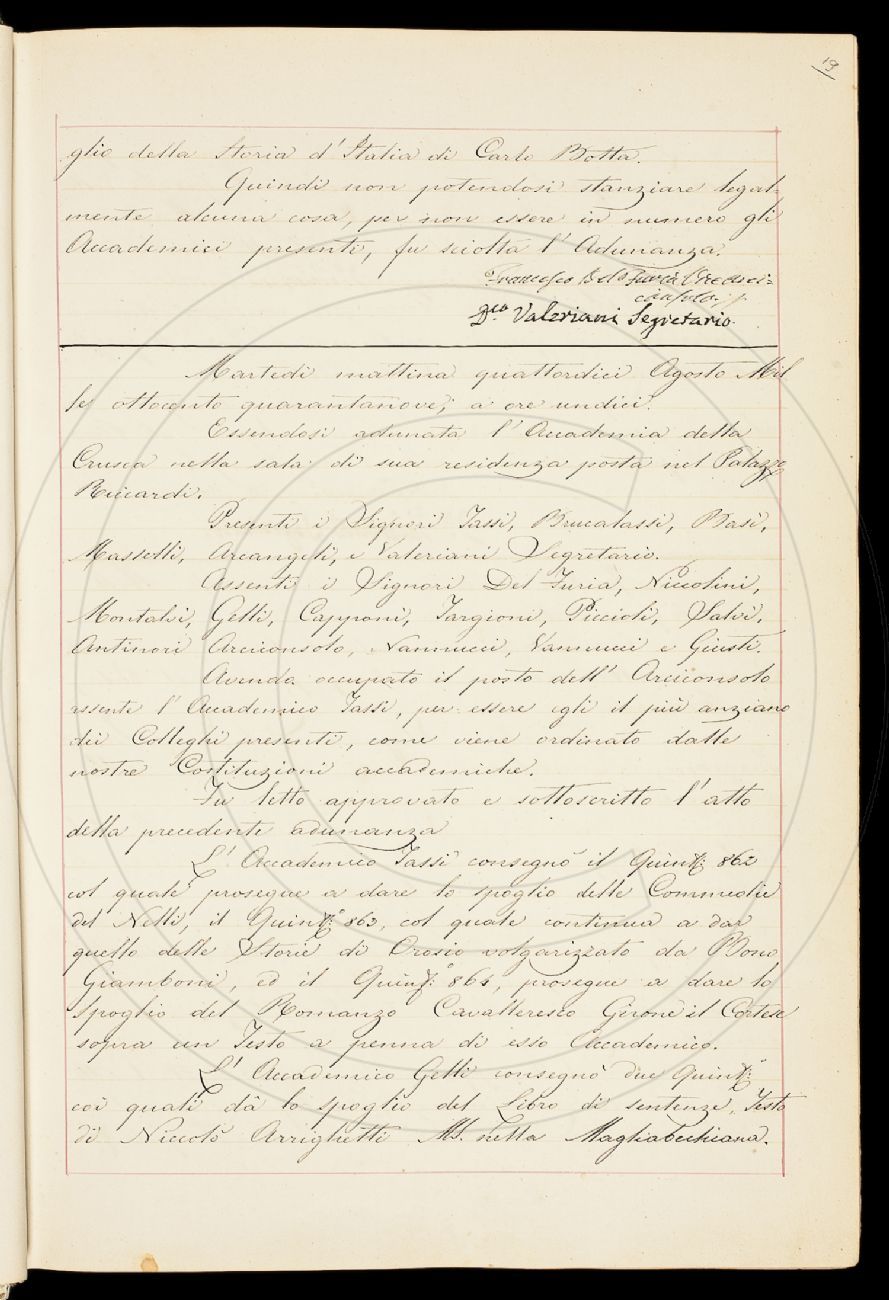 19
glio della Storia d'Italia di Carlo Botta.
Quindi non potendosi stanziare legal-
mente alcuna cosa, per non essere in numero gli
Accademici presenti, fu sciolta l'Adunanza.
Francesco Del Furia Vice Arci=
consolo.
Dco Valeriani Segretario.
Martedì mattina quattordici Agosto Mil
le ottocento quarantanove, a ore undici.
Essendosi adunata l'Accademia della
Crusca nella sala di sua residenza posta nel Palazzo
Riccardi.
Presenti i Signori Tassi, Brucalassi, Basi,
Masselli, Arcangeli, e Valeriani Segretario.
Assenti i Signori Del Furia, Niccolini,
Montalvi, Gelli, Capponi, Targioni, Piccioli, Salvi,
Antinori Arciconsolo, Nannucci, Vannucci e Giusti.
Avendo occupato il posto dell' Arciconsolo
assente l'Accademico Tassi, per essere egli il più anziano
dei Colleghi presenti, come viene ordinato dalle
nostre Costituzioni accademiche.
Fu letto approvato e sottoscritto l'atto
della precedente adunanza
L'Accademico Tassi consegnò il Quint: 862
col quale prosegue a dare lo spoglio delle Commedie
del Nelli, il Quint:o 863, col quale continua a dar
quello delle Storie di Orosio volgarizzato da Bono
Giamboni, ed il Quint:o 864, prosegue a dare lo
spoglio del Romanzo Cavalleresco Girone il Cortese
sopra un Testo a penna di esso Accademico.
L'Accademico Gelli consegnò due Quint:i
coi quali dà lo spoglio del Libro di sentenze, Testo
di Niccolò Arrighetti MS. nella Magliabechiana.